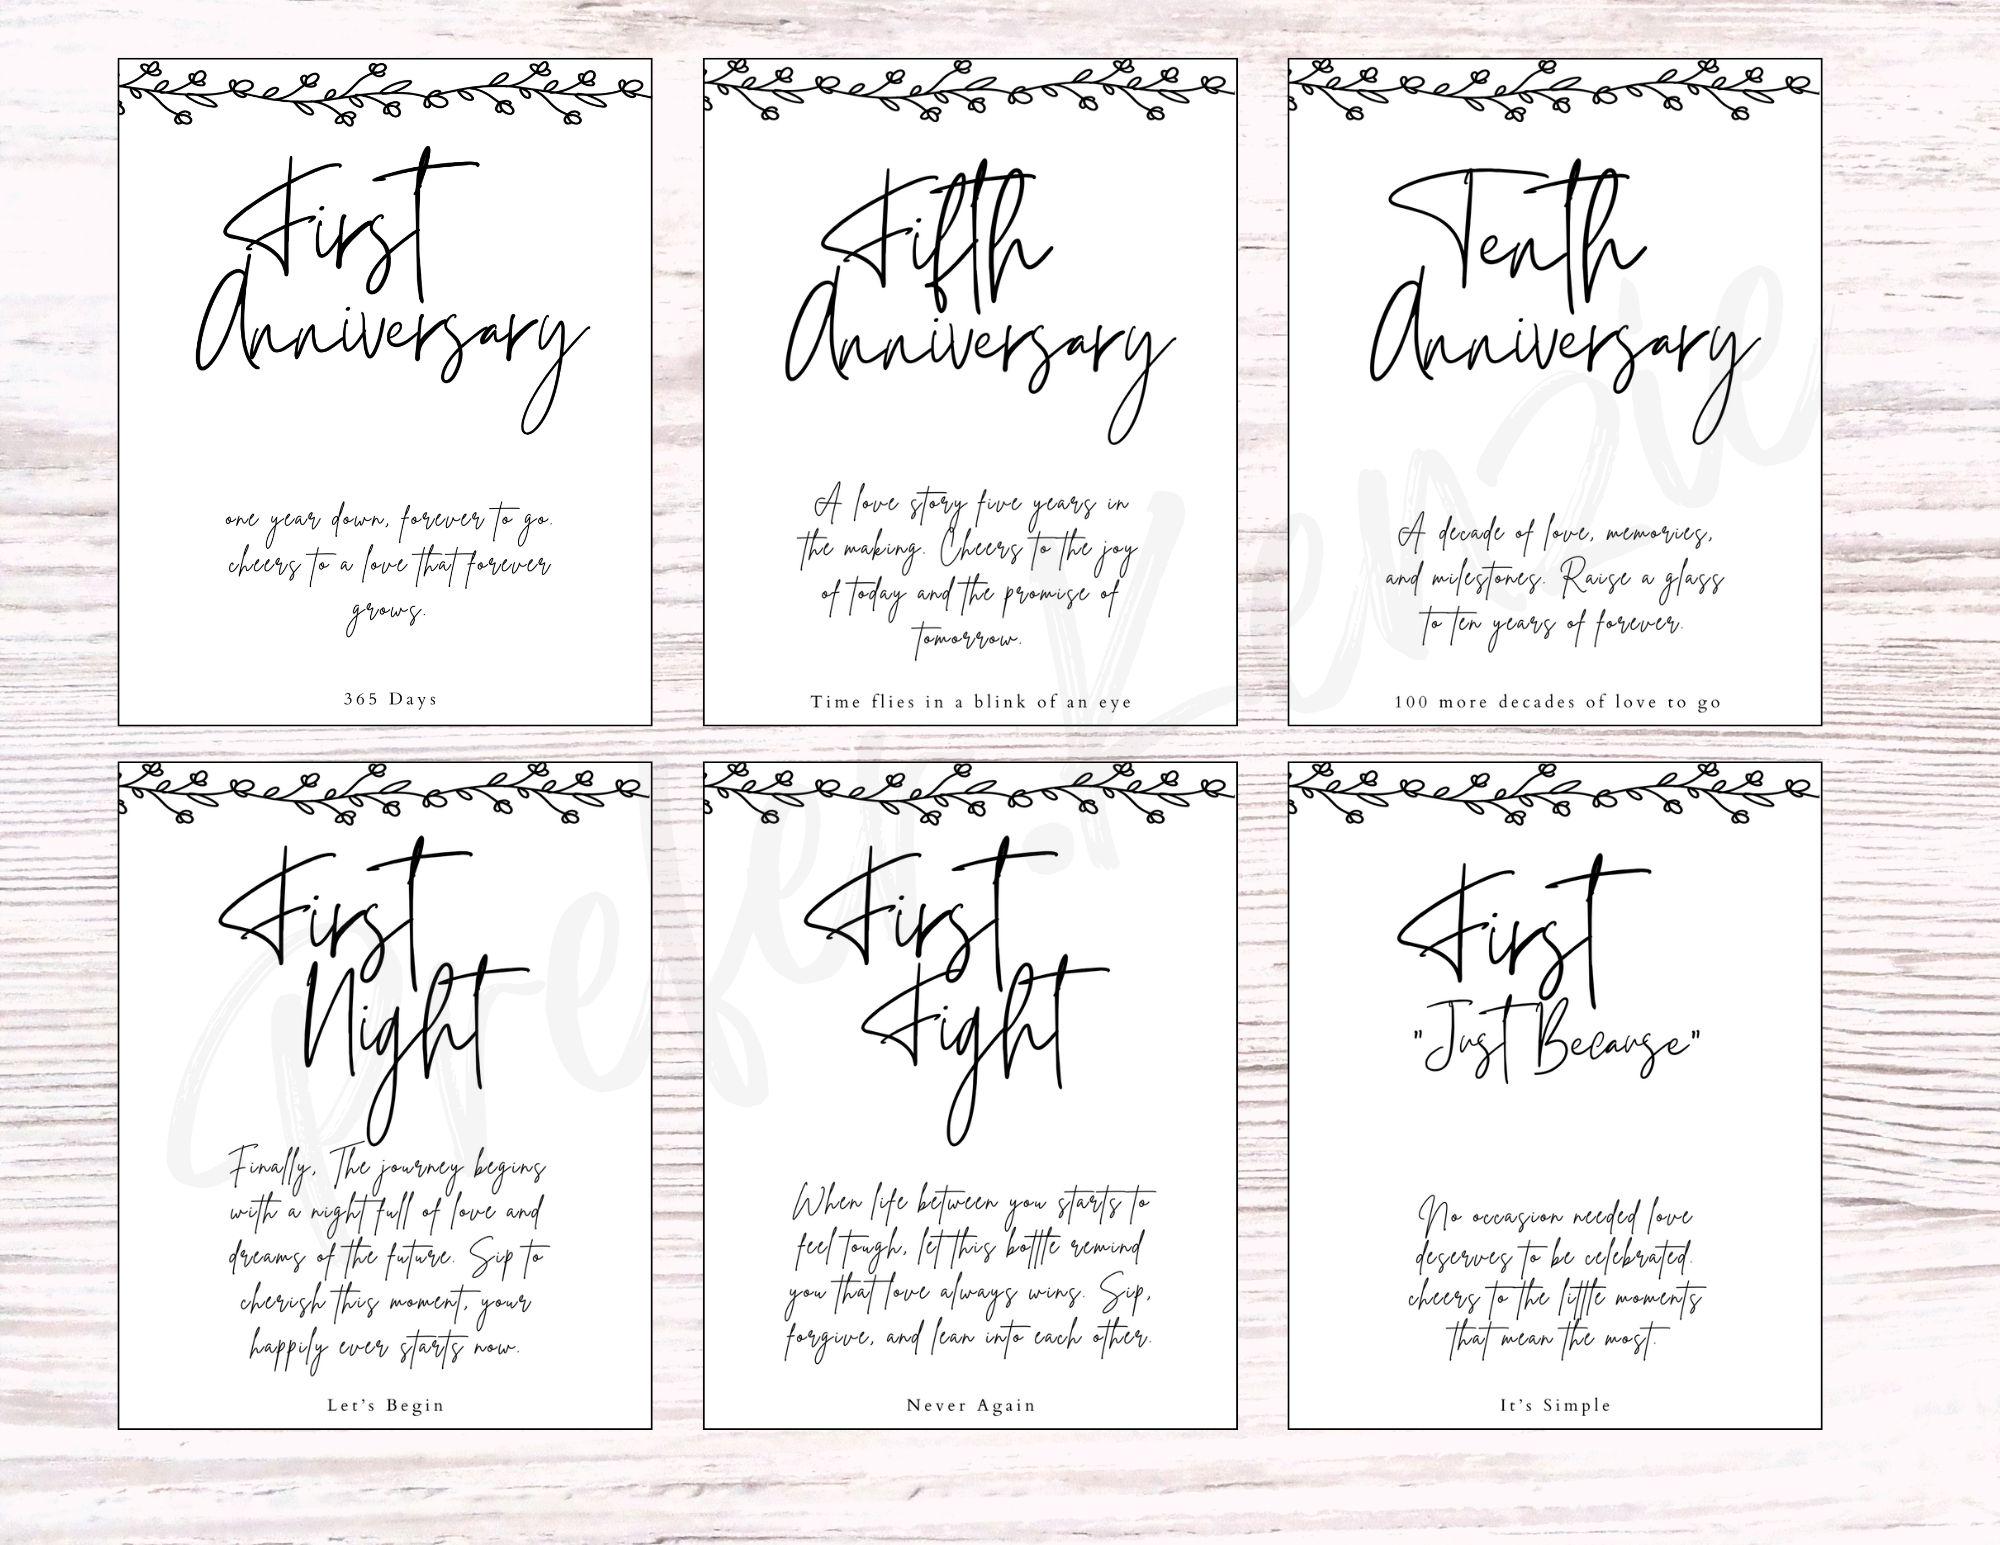 First
Anniversary
one year down, forever to go.
cheers to a love that forever
grows.
365 Days
Fifth
Anniversary
A love story five years in
the making. Cheers to the joy
of today and the promise of
tomorrow.
Time flies in a blink of an eye
Tenth
Anniversary
A decade of love, memories,
and milestones. Raise a glass
to ten years of forever.
100 more decades of love to go
First
Night
Finally, The journey begins
with a night full of love and
dreams of the future. Sip to
cherish this moment, your
happily ever starts now.
Let's Begin
First
Fight
When life between you starts to
feel tough, let this bottle remind
you that love always wins. Sip,
forgive, and lean into each other.
Never Again
First
"Just Because"
No occasion needed love
deserves to be celebrated.
cheers to the little moments
that mean the most.
It's Simple
Prefer.Kenzie